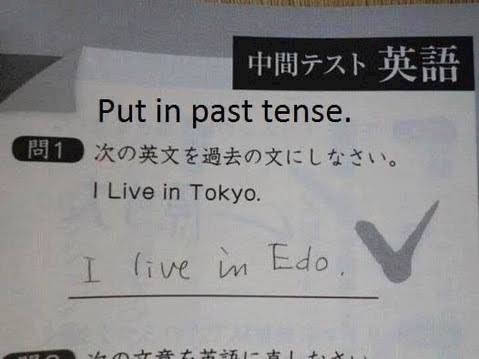 中間テスト 英語
Put in past tense.
問1 次の英文を過去の文にしなさい。
I Live in Tokyo.
I live in Edo.
次の文章を英語に直しなさい